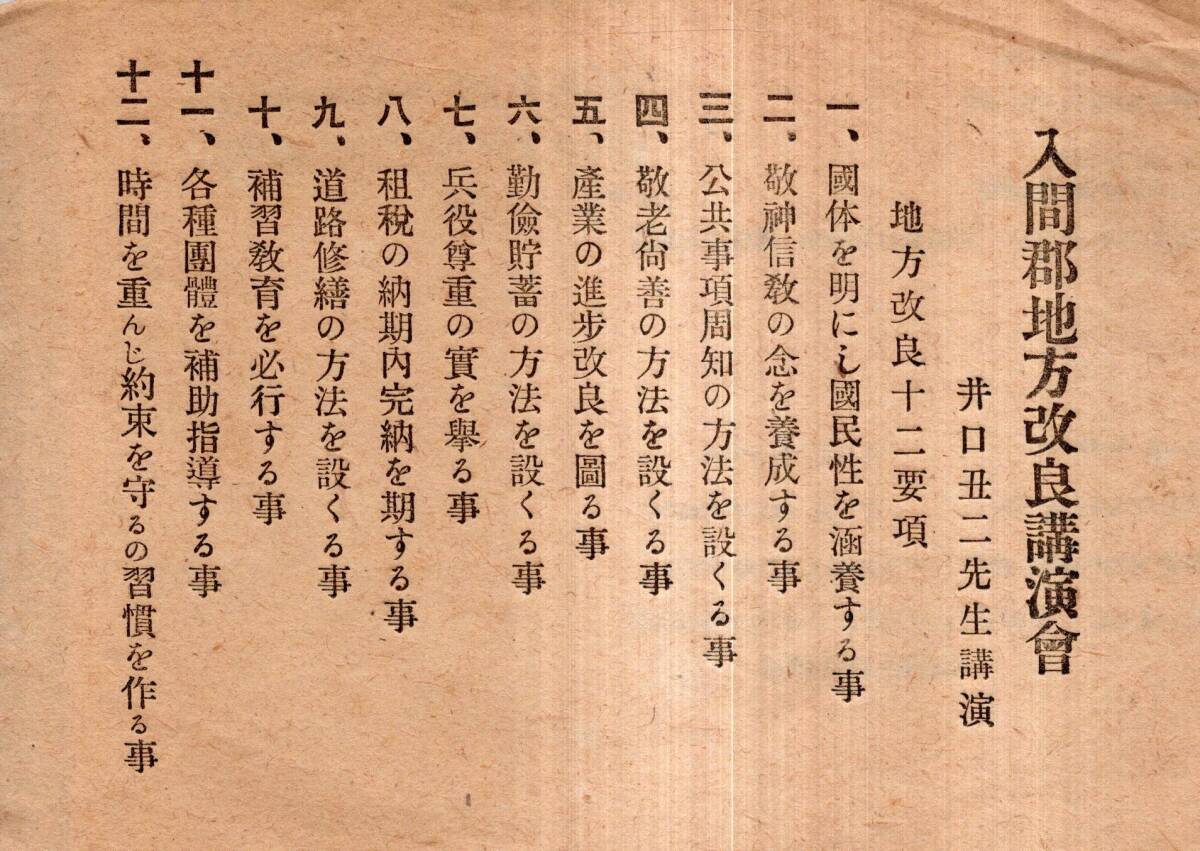 入間郡地方改良講演會
井口丑二先生講演
地方改良十二要項
一、國体を明にし國民性を涵養する事
二、敬神信敎の念を養成する事
三、公共事項周知の方法を設くる事
四、敬老尙善の方法を設くる事
五、產業の進步改良を圖る事
六、勤儉貯蓄の方法を設くる事
七、兵役尊重の實を擧る事
八、租稅の納期內完納を期する事
九、道路修繕の方法を設くる事
十、補習敎育を必行する事
十一、各種團體を補助指導する事
十二、時間を重んじ約束を守るの習慣を作る事